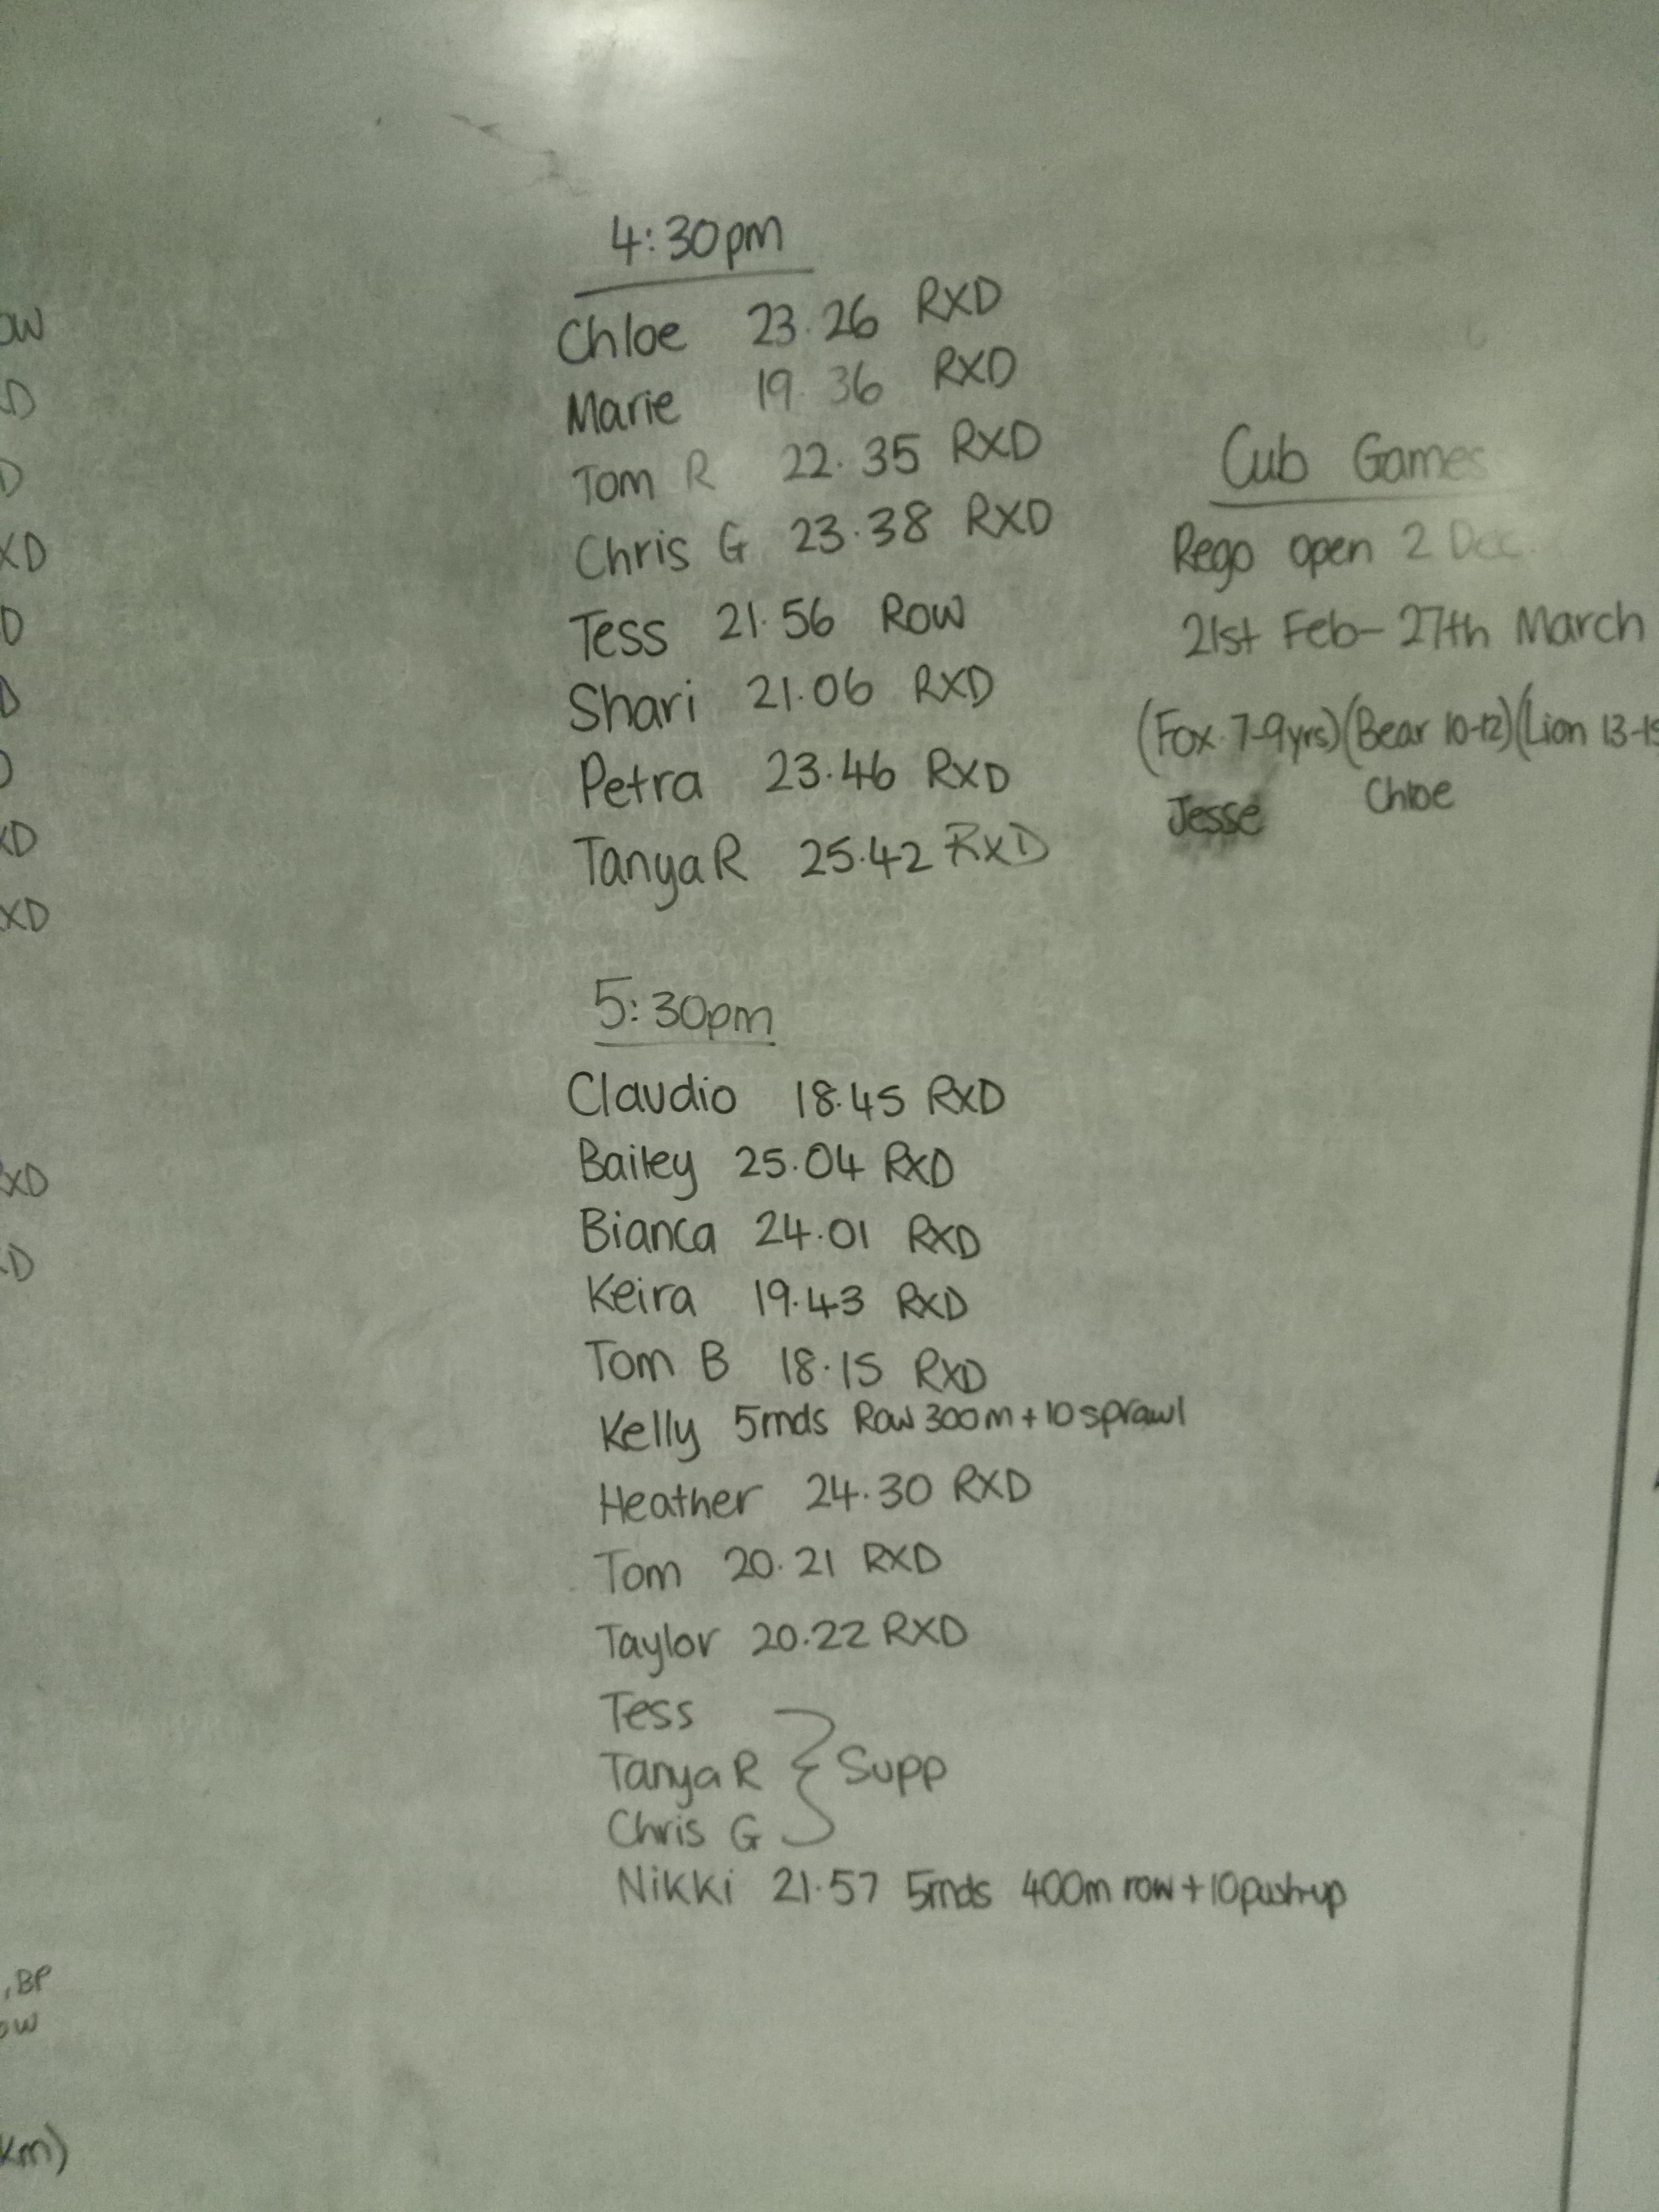 4:30pm
Chloe 23.26 RXD
Marie 19.36 RXD
Tom R 22.35 RXD
Chris G 23.38 RXD
Tess 21.56 Row
Shari 21.06 RXD
Petra 23.46 RXD
Tanya R 25.42 RXD
5:30pm
Claudio 18.45 RXD
Bailey 25.04 RXD
Bianca 24.01 RXD
Keira 19.43 RXD
Tom B 18.15 RXD
Kelly 5rnds Row 300m + 10 sprawl
Heather 24.30 RXD
Tom 20.21 RXD
Taylor 20.22 RXD
Tess
Tanya R } Supp
Chris G
Nikki 21.57 5rnds 400m row + 10 push-up
Cub Games
Rego open 2 Dec.
21st Feb - 27th March
(Fox 7-9yrs) (Bear 10-12) (Lion 13-15
Jesse Chloe
XD
XD
XD
XD
, BP
km)